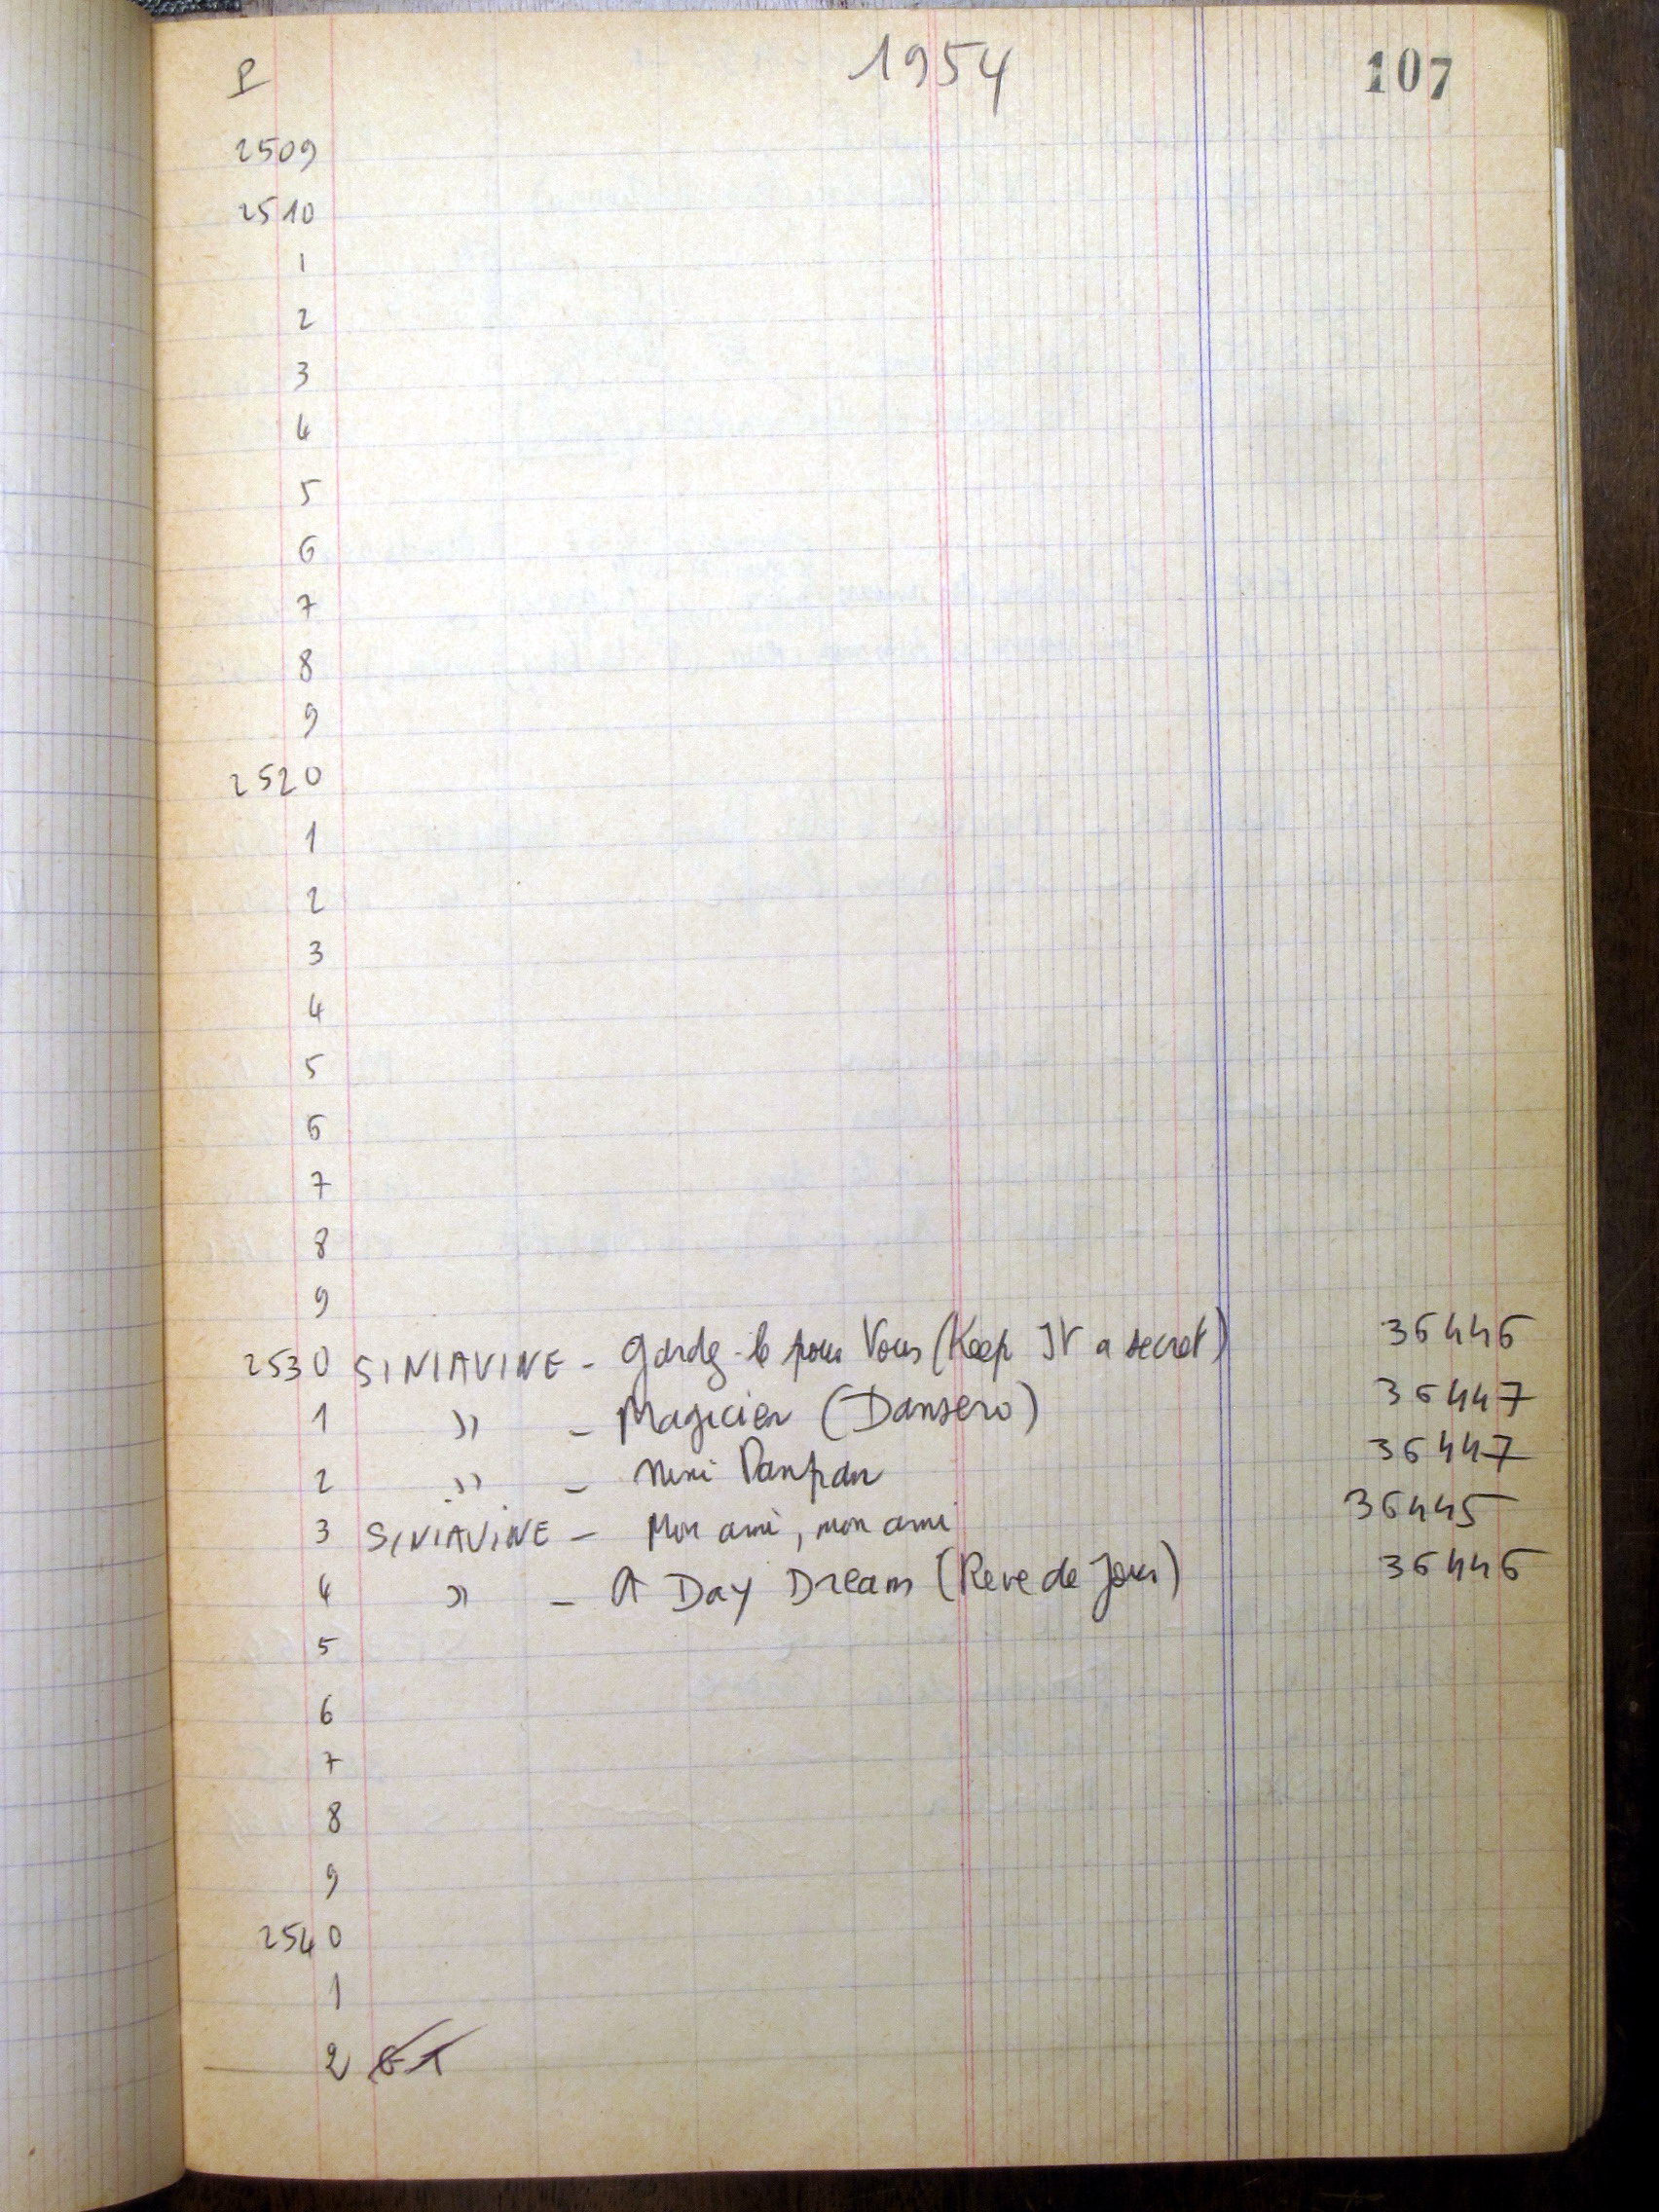 P 1954 107
2509
2510
1
2
3
4
5
6
7
8
9
2520
1
2
3
4
5
6
7
8
9
2530 SINIAVINE - Gardez-le pour Vous (Keep IT a secret) 36446
1 " - Magicien (Dansero) 36447
2 " - Nini Panpan 36447
3 SINIAVINE - Mon ami, mon ami 36445
4 " - A Day Dream (Reve de Jour) 36446
5
6
7
8
9
2540
1
2